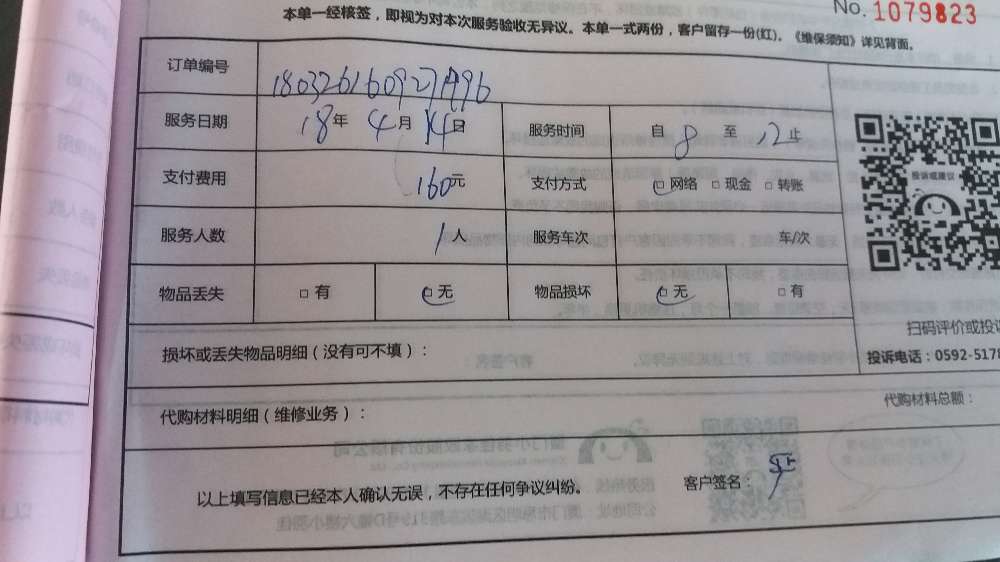 No. 1079823
本单一经核签，即视为对本次服务验收无异议。本单一式两份，客户留存一份(红)。《维保须知》详见背面。
订单编号
服务日期 18年 4月 14日 服务时间 自 8 至 12 止
投诉或建议
支付费用 160元 支付方式 □网络 □现金 □转账
服务人数 1人 服务车次 车/次
物品丢失 □有 □无 物品损坏 □无 □有
扫码评价或投诉
损坏或丢失物品明细（没有可不填）：
投诉电话：0592-5178
代购材料明细（维修业务）： 代购材料总额：
以上填写信息已经本人确认无误，不存在任何争议纠纷。 客户签名：